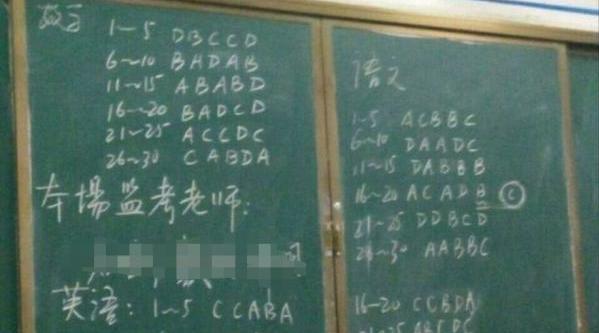 1~5 DBCCD
6~10 BADAB
11~15 ABABD
16~20 BADCD
21~25 ACCDC
26~30 CABDA
本場监考老师:
英语: 1~5 CCABA
语文
1~5 ACBBC
6~10 DAADC
11~15 DABBB
16~20 ACADB C
21~25 DDBCD
26~30 AABBC
16~20 CCBDA